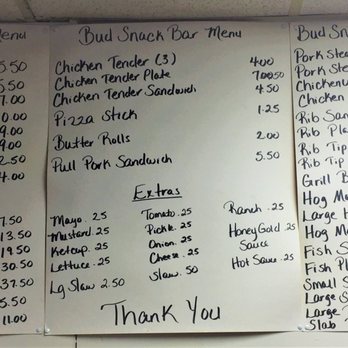 Menu
5.50
5.50
7.00
9.00
2.50
4.00
7.50
13.50
19.50
30.50
37.50
5.50
11.00
Bud Snack Bar Menu
Chicken Tender (3) 4.00
Chicken Tender Plate
Chicken Tender Sandwich 4.50
Pizza Stick 1.25
Butter Rolls 2.00
Pull Pork Sandwich 5.50
Extras
Mayo .25 Tomato .25 Ranch .25
Mustard .25 Pickle .25 Honey Gold .25
Ketcup .25 Onion .25 Sauce
Lettuce .25 Cheese .25 Hot Sauce .25
Lg Slaw 2.50 Slaw .50
Thank You
Bud Sn
Pork Ste
Pork Ste
Chicken
Chicken
Rib San
Rib Pla
Rib Tip
Rib Tip
Grill B
Hog M
Large H
Hog M
Fish S
Fish Pl
Small S
Large S
Large S
Slab